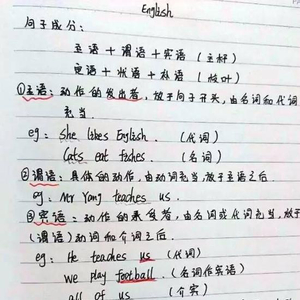 English
句子成分:
主语 + 谓语 + 宾语 (主干)
定语 + 状语 + 补语 (枝叶)
①主语: 动作的发出者, 放于句子开头, 由名词和代词
充当.
eg: She likes English. (代词)
Cats eat fishes. (名词)
②谓语: 具体的动作, 由动词充当, 放于主语之后.
eg: Mr Yang teaches us.
③宾语: 动作的承受者, 由名词或代词充当, 放于
(谓语)动词和介词之后.
eg: He teaches us (代词)
we play football. (名词作宾语)
all of us (介宾)